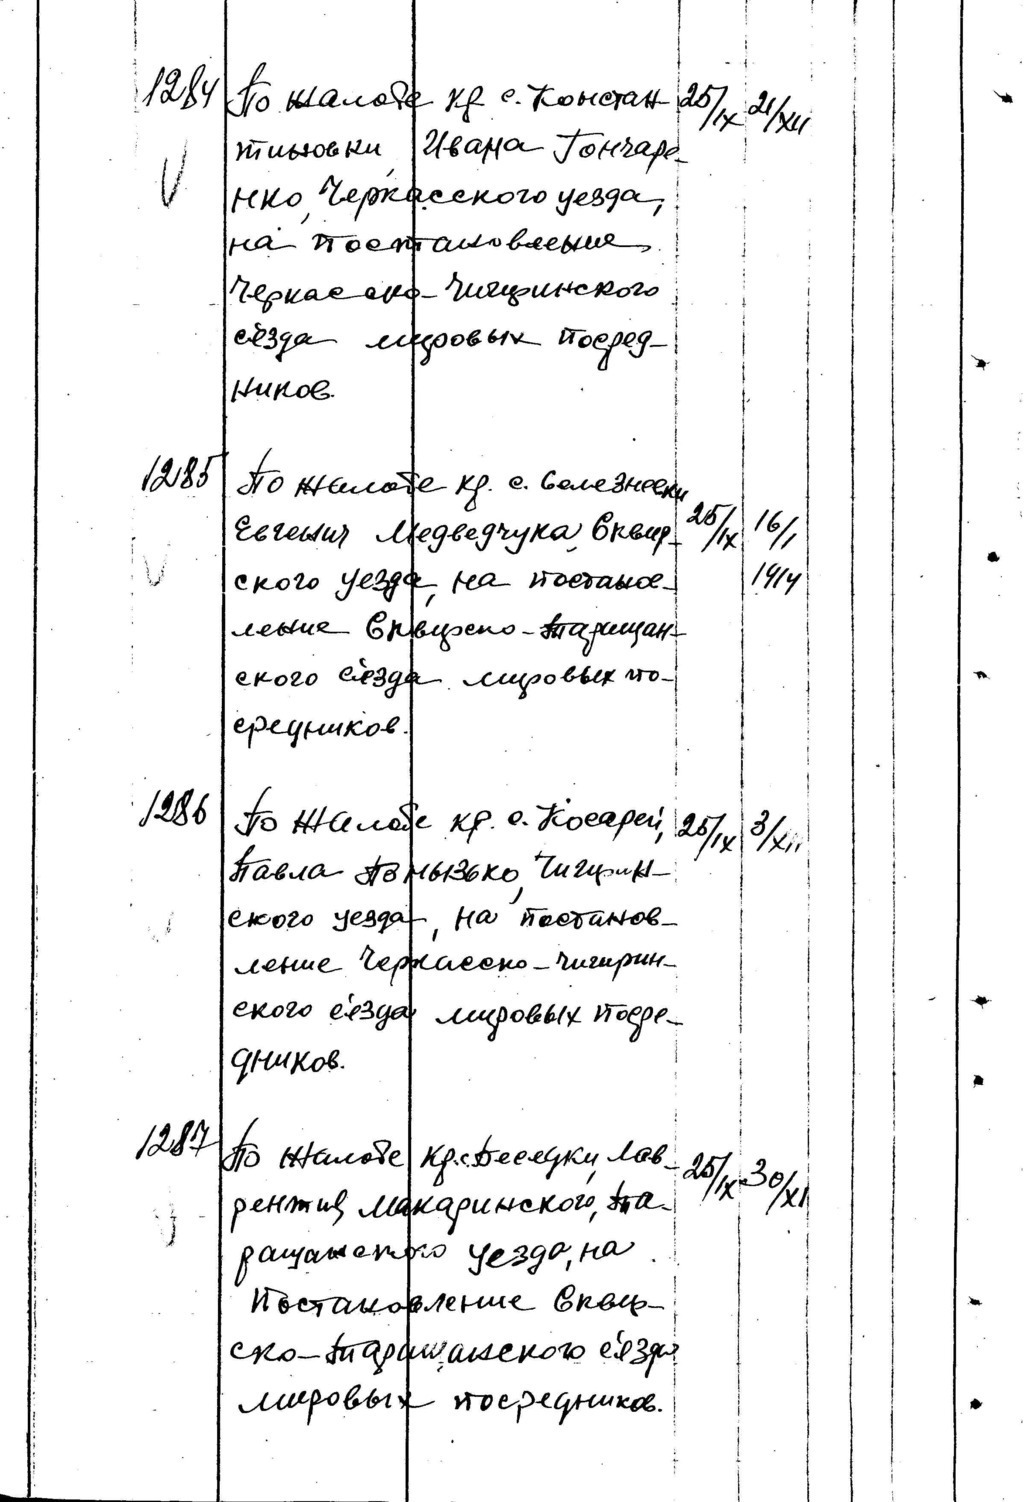 1284 По жалобе кр. с. Констан- 25/IX 21/XII
тиновки, Ивана Гончаре-
нко, Черкасского уезда,
на постановление
Черкасско-Чигиринского
с'езда мировых посред-
ников.
1285 По жалобе кр. с. Селезневки
Евгении Медведчука, Сквир- 25/IX 16/I
ского уезда, на постанов- 1914
ление Сквирско-Таращан-
ского с'езда мировых по-
средников.
1286 По жалобе кр. с. Косарей, 25/IX 3/XII
Павла Понызько, Чигирин-
ского уезда, на постанов-
ление Черкасско-Чигирин-
ского с'езда мировых посре-
дников.
1287 По жалобе кр. с. Беседки, Лав- 25/IX 30/XI
рентия Макаринского, Та-
ращанского уезда, на
Постановление Сквир-
ско-Таращанского с'езда
мировых посредников.